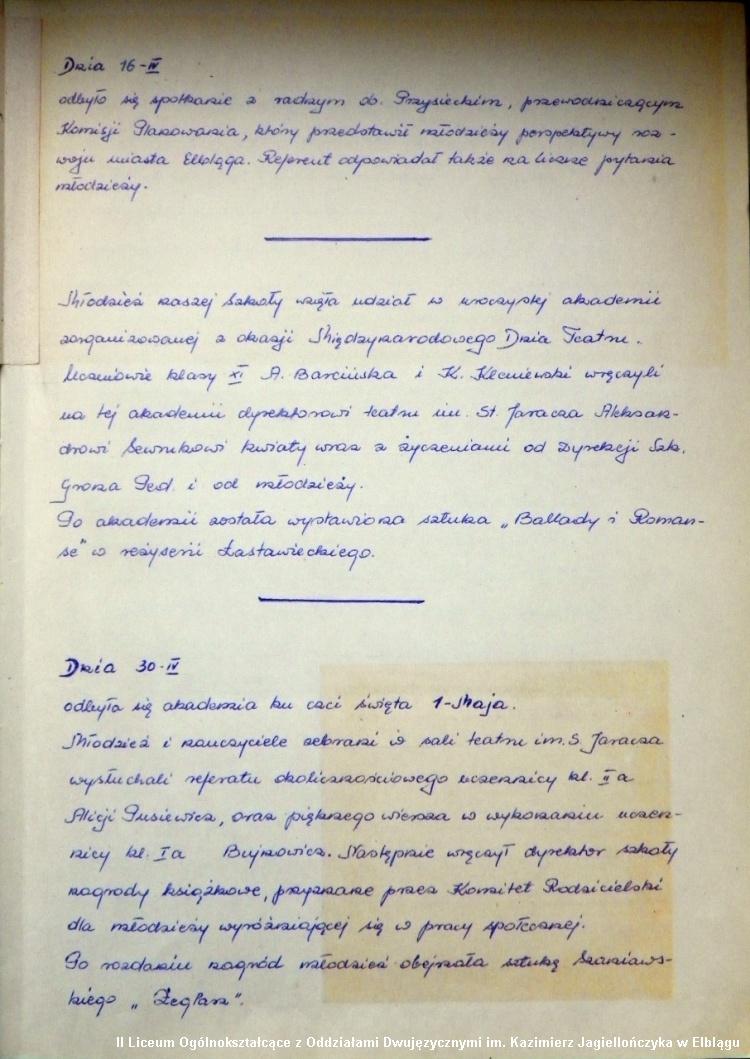 Dnia 16-IV
odbyło się spotkanie z radnym ob. Przysieckim, przewodniczącym
Komisji Planowania, który przedstawił młodzieży perspektywy roz-
woju miasta Elbląga. Referent odpowiadał także na liczne pytania
młodzieży.
Młodzież naszej szkoły wzięła udział w uroczystej akademii
zorganizowanej z okazji Międzynarodowego Dnia Teatru.
Uczniowie klasy XI A. Barcińska i K. Kleniewski wręczyli
na tej akademii dyrektorowi teatru im. St. Jaracza Aleksan-
drowi Sewrukowi kwiaty wraz z życzeniami od Dyrekcji Szk.
Grona Ped. i od młodzieży.
Po akademii została wystawiona sztuka „Ballady i Roman-
se" w reżyserii Łastawieckiego.
Dnia 30-IV
odbyła się akademia ku czci święta 1-Maja.
Młodzież i nauczyciele zebrani w sali teatru im. S. Jaracza
wysłuchali referatu okolicznościowego uczennicy kl. IIa
Alicji Gusiewicz, oraz pięknego wiersza w wykonaniu uczen-
nicy kl. Ia Bujnowicz. Następnie wręczył dyrektor szkoły
nagrody książkowe, przyznane przez Komitet Rodzicielski
dla młodzieży wyróżniającej się w pracy społecznej.
Po rozdaniu nagród młodzież obejrzała sztukę Szaniaws-
kiego „Żeglarz".
II Liceum Ogólnokształcące z Oddziałami Dwujęzycznymi im. Kazimierz Jagiellończyka w Elblągu